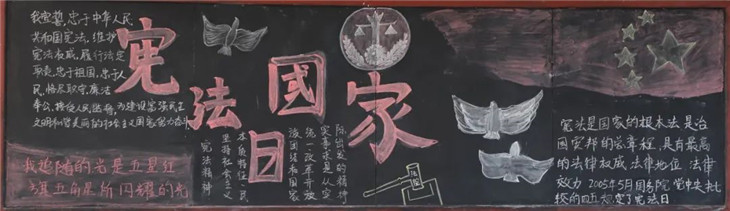 我宣誓，忠于中华人民
共和国宪法，维护
宪法权威，履行法定
职责，忠于祖国、忠于人
民，恪尽职守、廉洁
奉公，接受人民监督，为建设富强民主
文明和谐美丽的社会主义国家努力奋斗
我追随的光是五星红
旗五角星所闪耀的光
國家
宪法日
宪法精神
坚持社会主义
本质特征，民
族团结和国家
统一改革开放
实事求是从实
际出发的精神
法律
宪法是国家的根本法是治
国安邦的总章程，具有最高
的法律权威 法律地位 法律
效力 2005年5月国务院 党中央批